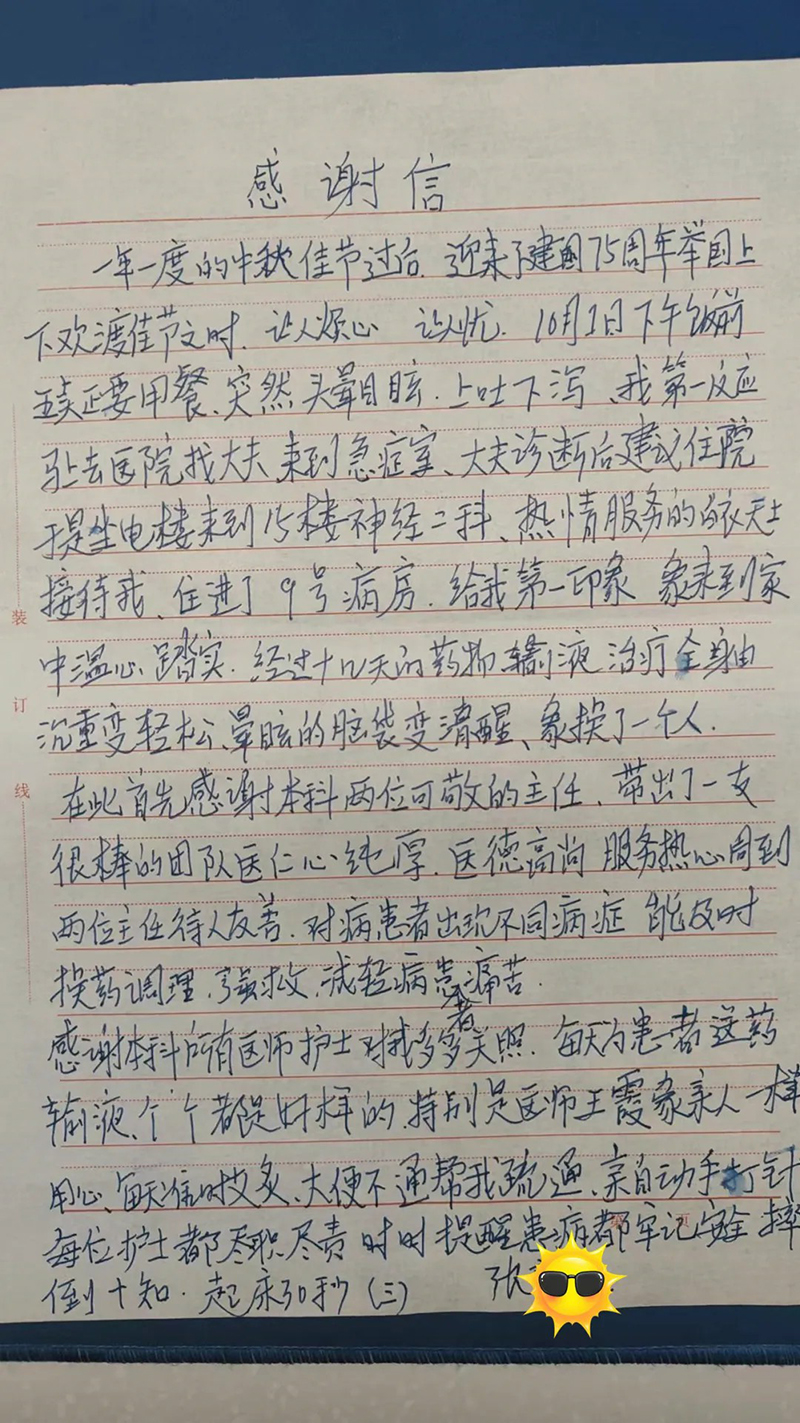 感谢信
一年一度的中秋佳节过后.迎来了建国75周年举国上
下欢渡佳节之时.让人烦心 让人忧.10月1日下午饭前
正要用餐、突然头晕目眩.上吐下泻、我第一反应
去医院找大夫,来到急症室、大夫诊断后建议住院
于是坐电楼来到15楼神经二科、热情服务的白衣天士
接待我、住进了9号病房.给我第一印象 象来到家
中温心踏实.经过十几天的药物输液治疗全身由
沉重变轻松、晕眩的脑袋变清醒、象换了一个人.
在此首先感谢本科两位可敬的主任、带出了一支
很棒的团队医仁心纯厚.医德高尚 服务热心周到
两位主任待人友善.对病患者出现不同病症 能及时
换药调理.减轻病患者痛苦.
感谢本科所有医师护士对我多多关照.每天为患者送药
输液、个个都是好样的.特别是医师王霞象亲人一样
用心、每天准时艾灸、大便不通帮我疏通、亲自动手打针
每位护士都尽职尽责 时时提醒患病都牢记安全 摔
倒十知.起床30秒(三) 张
装
订
线